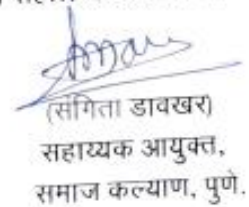 (संगिता डावखर)
सहाय्यक आयुक्त,
समाज कल्याण, पुणे.